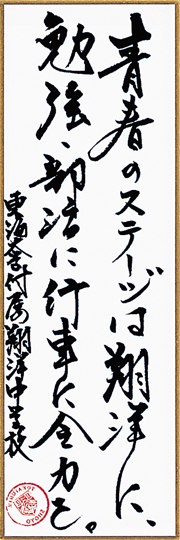 青春のステージは翔洋に、
勉強、部活に行事に全力を。
東海大付属翔洋中等校